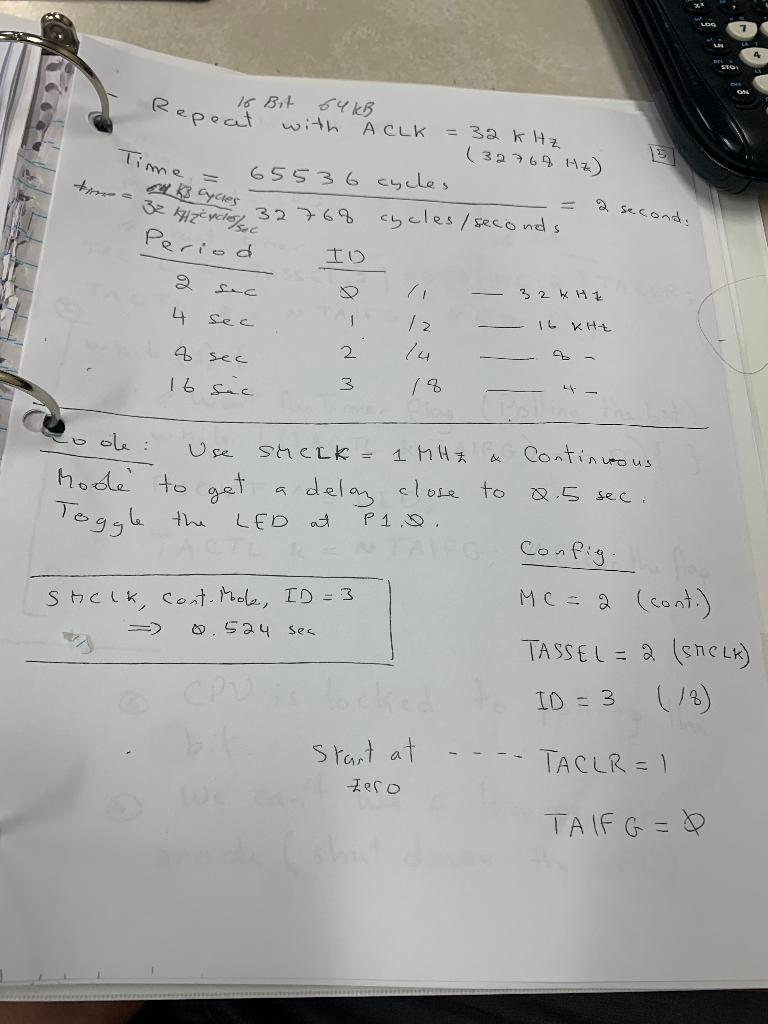 16 Bit 64kB
- Repeat with ACLK = 32 kHz
(32768 Hz)
5
Time = 65536 cycles
32768 cycles/seconds = 2 second:
time = 64 KB cycles
32 KHz cycles/sec
Period ID
2 sec 0 /1 — 32 kHz
4 sec 1 /2 — 16 KHz
8 sec 2 /4 — 8 -
16 sec 3 /8 — 4 -
Code: Use SMCLK = 1 MHz & Continuous
Mode to get a delay close to 0.5 sec.
Toggle the LED at P1.0.
Config.
SMCLK, Cont. Mode, ID = 3
=> 0.524 sec
MC = 2 (cont.)
TASSEL = 2 (SMCLK)
ID = 3 (/8)
Start at zero ---- TACLR = 1
TAIFG = 0
CPU is locked to the
bit
We can't use a
mode (shut down the
LOG
7
LN
4
STO
ON